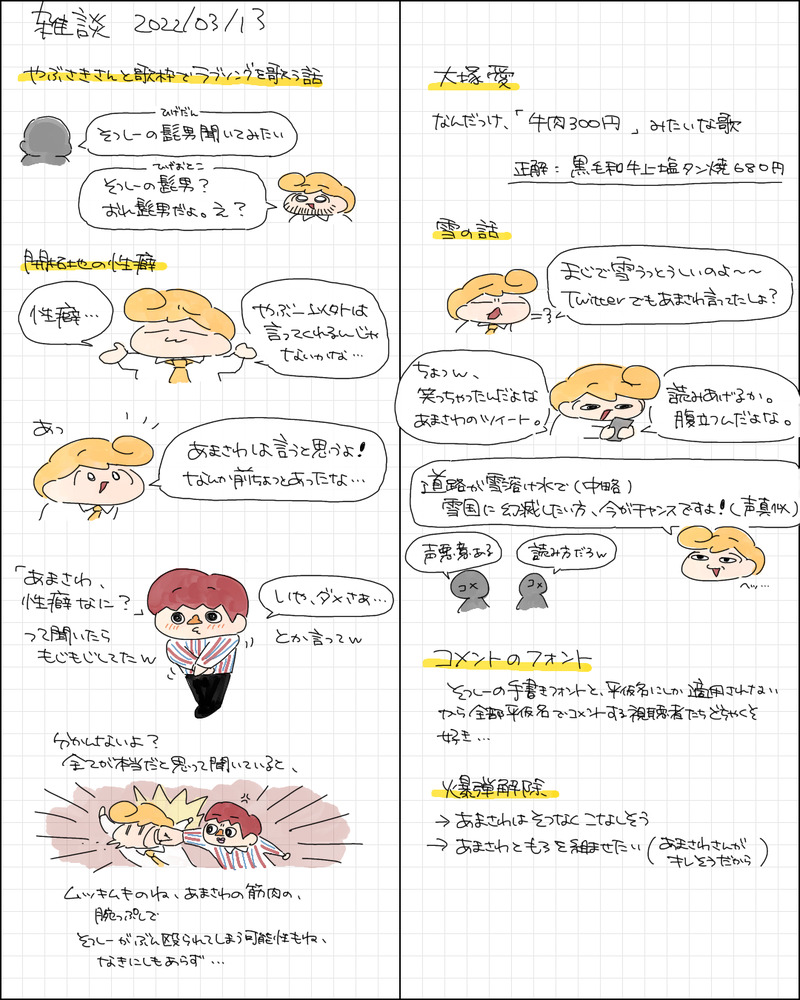 雑談 2022/03/13
やぶさきさんと歌枠でラブソングを歌える話
ひげだん
そっしーの髭男聞いてみたい
ひげおとこ
そっしーの髭男？
おれ髭男だよ。え？
開拓地の性癖
性癖…
やぶームメタトは
言ってくれるんじゃ
ないかな…
あっ
あまさわしよ言うと思うよ！
なんか前ちょっとあったな…
「あまさわ、
性癖なに？」
って聞いたら
もじもじとしてたw
いや、ダメさぁ…
とか言ってw
分かんないよ？
全てが本当だと思って聞いていると、
ムッキムキのね、あまさわの筋肉の、
腕っぷしで
そっしーがぶん殴られてしまう可能性もね、
なきにしもあらず…
大塚愛
なんだっけ、「牛肉300円」みたいな歌
正解：黒毛和牛上塩タン焼680円
雪の話
まじで雪うっとうしいのよ〜〜
Twitterでもあまさわ言ってたしょ？
ちょっw、
笑っちゃったんだよな
あまさわのツイート。
読みあげるか。
腹立つんだよな。
道路が雪溶け水で(中略)
雪国に幻滅したい方、今がチャンスですよ！(声真似)
声悪意ある
読み方だろw
コメ
コメ
ヘッ…
コメントのフォント
そっしーの手書きフォントと、平仮名にしか適用されない
から全部平仮名でコメントする視聴者たちどちゃくそ
好き…
爆弾解除
→あまさわはそつなくこなしそう
→あまさわともろを組ませたい(あまさわさんが
キレそうだから)